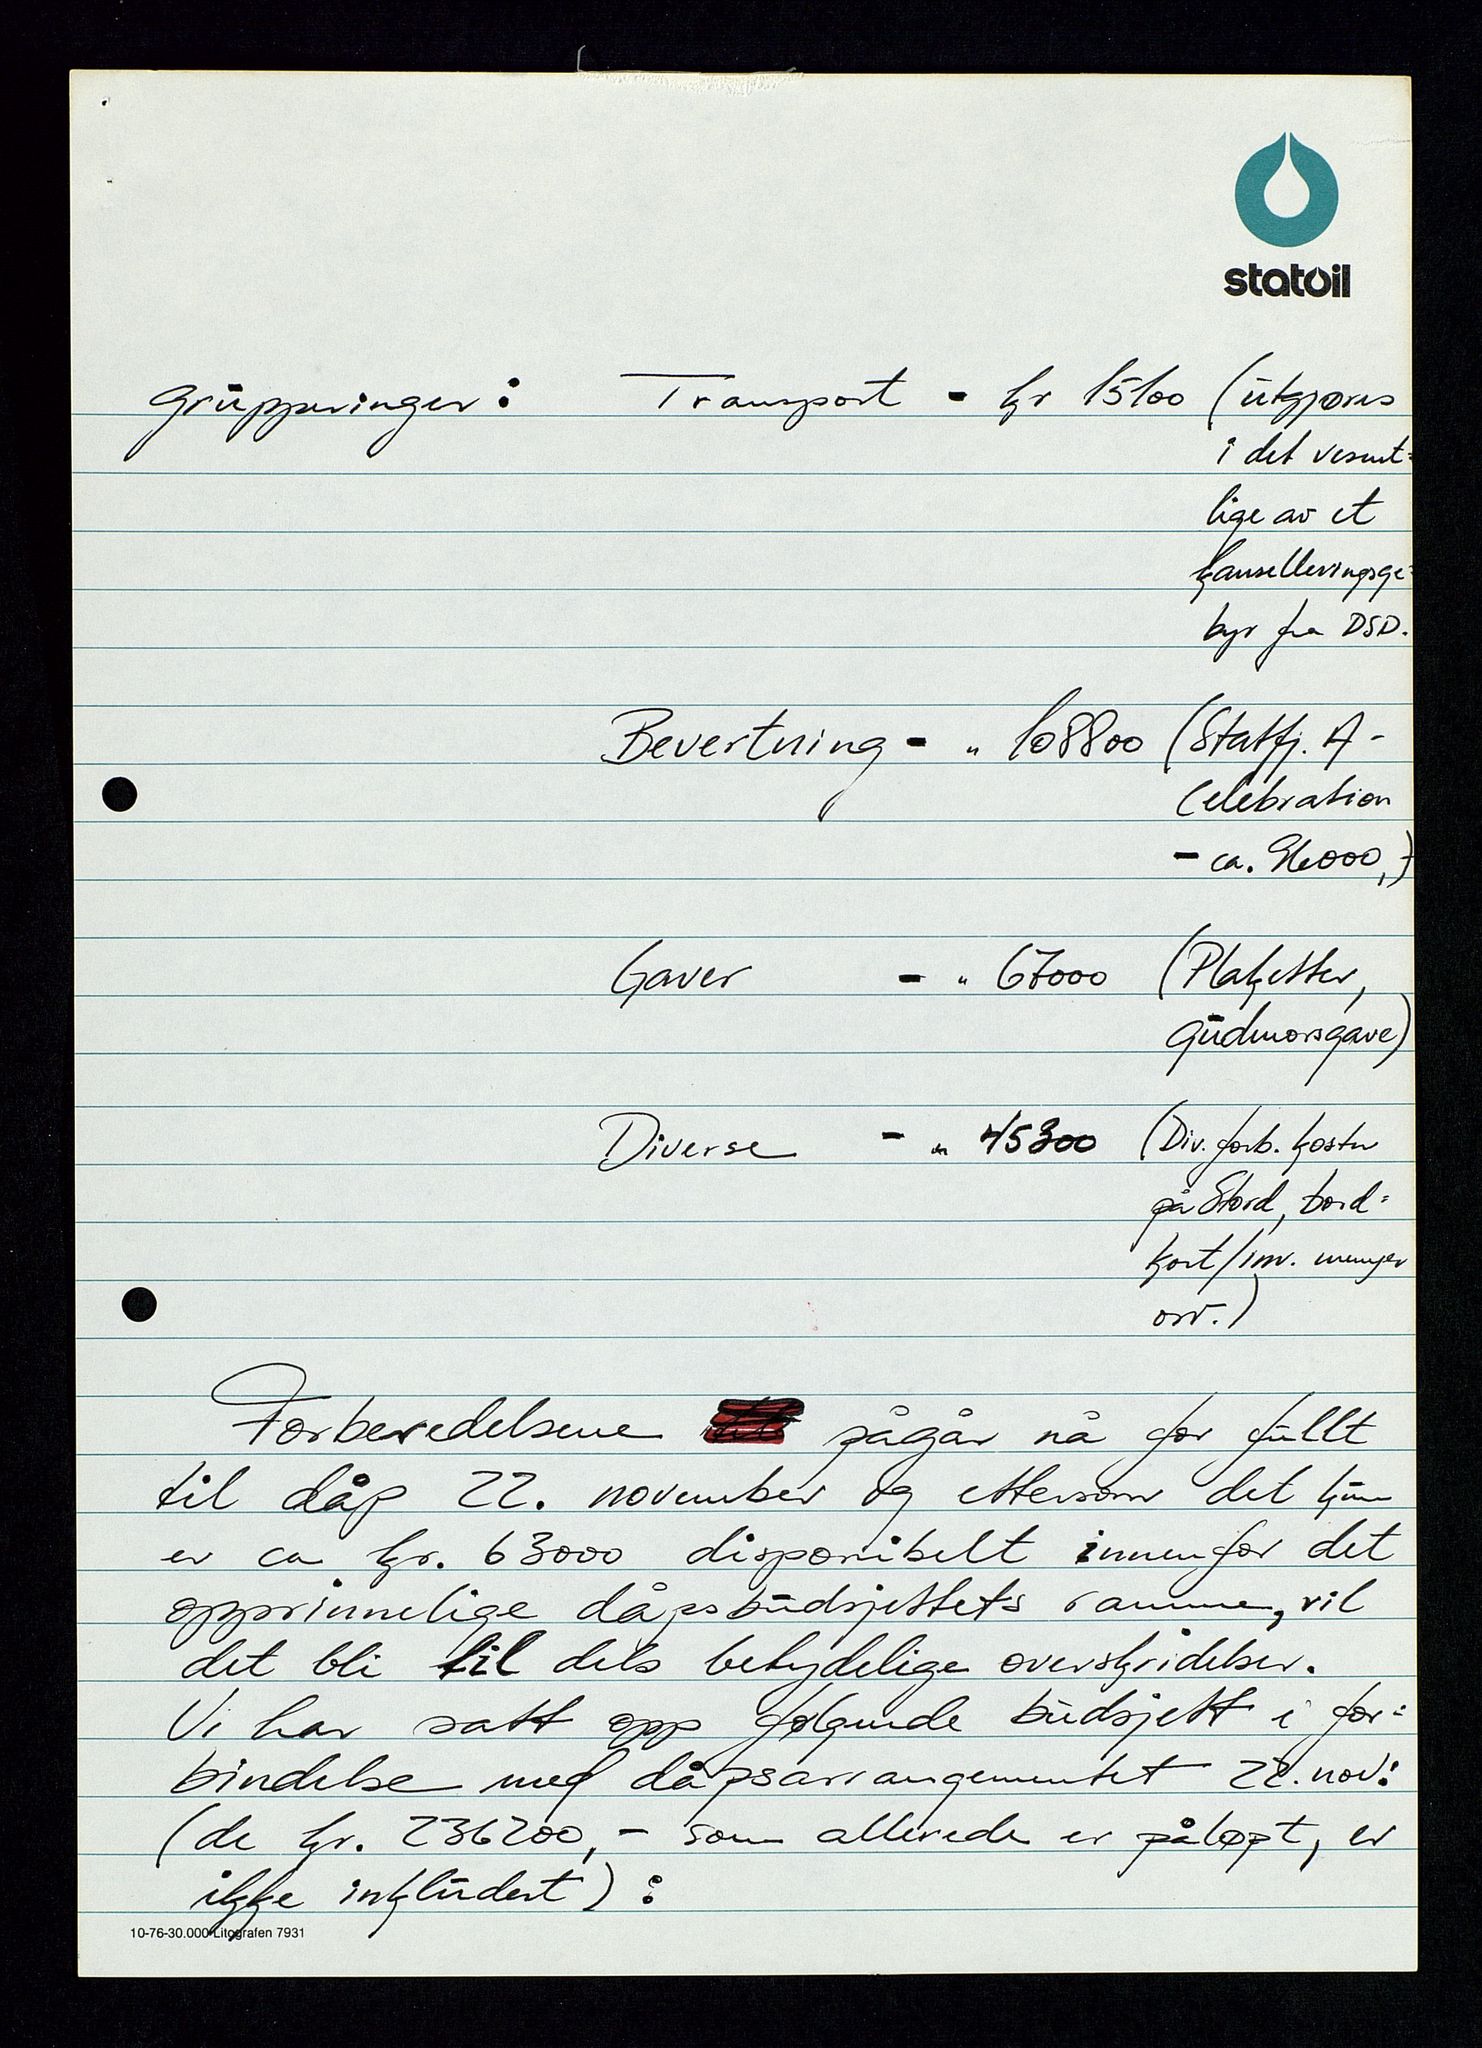 statoil
grupperinger: Transport - kr 15100 (utgjøres
i det vesent=
lige av et
kanselleringsge=
byr fra DSD.
Bevertning - " 108800 (Statfj. A -
Celebration
- ca. 96000,-)
Gaver - " 67000 (Plaketter,
gudmorsgave)
Diverse - " 45300 (Div. forb. kostn
på Stord, bord=
kort/inv. menyer
osv.)
Forberedelsene pågår nå for fullt
til dåp 22. november og ettersom det kun
er ca kr. 63000 disponibelt innenfor det
opprinnelige dåpsbudsjettets ramme, vil
det bli til dels betydelige overskridelser.
Vi har satt opp følgende budsjett i for=
bindelse med dåpsarrangementet 22. nov:
(de kr. 236200,- som allerede er påløpt, er
ikke inkludert):
10-76-30.000 Litografen 7931